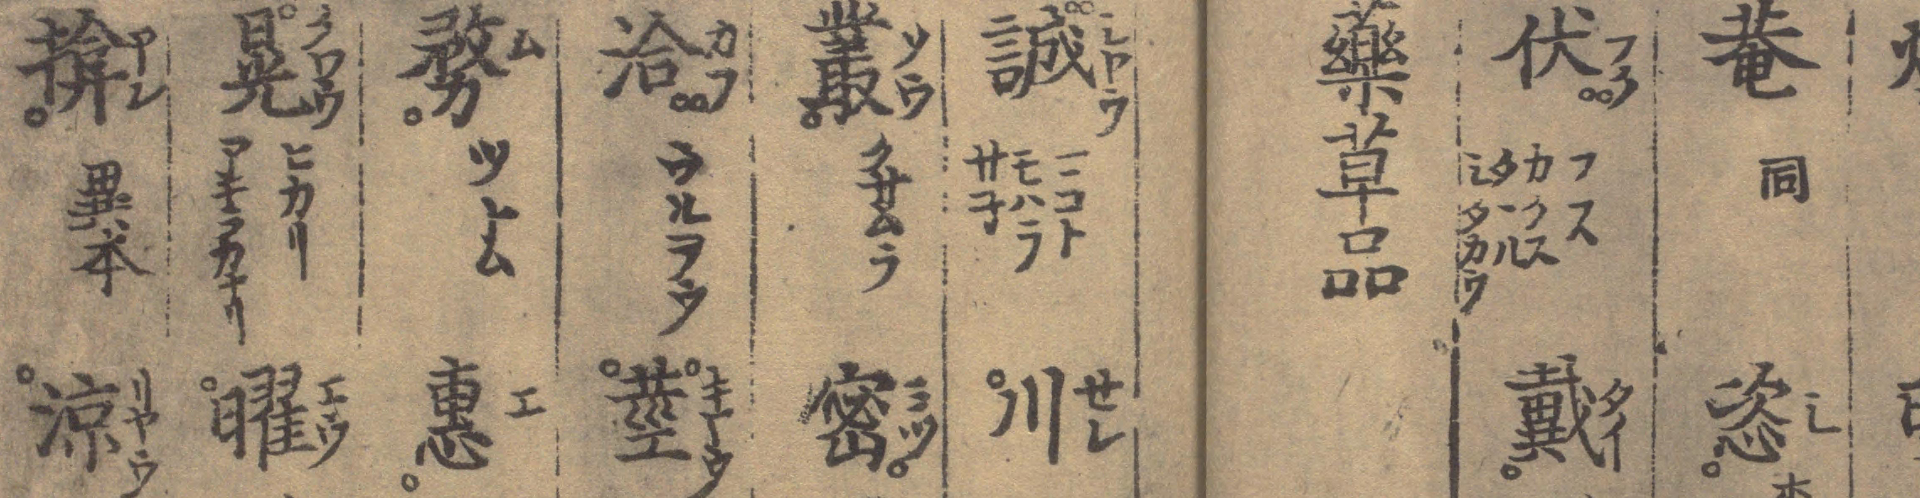 菴 同 恣 シ
伏 フク フス カクス シタカウ 戴 タイ
藥草品
誠 シヤウ マコト モハラ サ子 川 セン
叢 ソウ クサムラ 密 ミツ
洽 カフ ウルヲウ 莖 キヤウ
務 ム ツトム 惠 エ
晃 クワウ ヒカリ アキラカナリ 曜 エウ
揜 アン 異本 涼 リヤウ